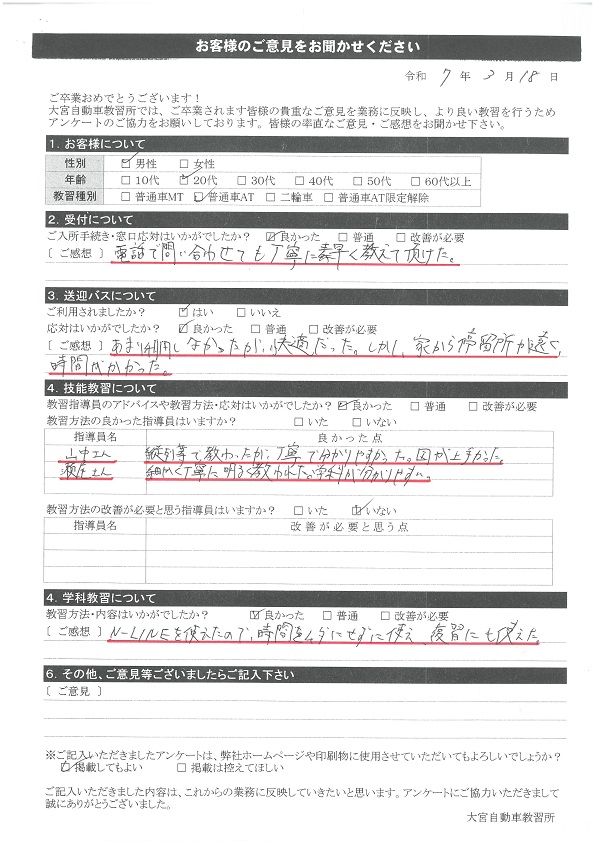 お客様のご意見をお聞かせください
令和 7 年 3 月 18 日
ご卒業おめでとうございます！
大宮自動車教習所では、ご卒業されます皆様の貴重なご意見を業務に反映し、より良い教習を行うため
アンケートのご協力をお願いしております。皆様の率直なご意見・ご感想をお聞かせ下さい。
1. お客様について
性別 ☑男性 □女性
年齢 □10代 ☑20代 □30代 □40代 □50代 □60代以上
教習種別 □普通車MT ☑普通車AT □二輪車 □普通車AT限定解除
2. 受付について
ご入所手続き・窓口応対はいかがでしたか？ ☑良かった □普通 □改善が必要
〔ご感想〕 電話で問い合わせても丁寧に素早く教えて頂けた。
3. 送迎バスについて
ご利用されましたか？ ☑はい □いいえ
応対はいかがでしたか？ ☑良かった □普通 □改善が必要
〔ご感想〕 あまり利用しなかったが、快適だった。しかし、家から停留所が遠く、
時間がかかった。
4. 技能教習について
教習指導員のアドバイスや教習方法・応対はいかがでしたか？ ☑良かった □普通 □改善が必要
教習方法の良かった指導員はいますか？ □いた □いない
指導員名 良かった点
山中さん 縦列等で教わったが、丁寧で分かりやすかった。図が上手かった。
さん 細かく丁寧に明るく教われた。学科が分かりやすい。
教習方法の改善が必要と思う指導員はいますか？ □いた ☑いない
指導員名 改善が必要と思う点
4. 学科教習について
教習方法・内容はいかがでしたか？ ☑良かった □普通 □改善が必要
〔ご感想〕 N-LINEを使えたので、時間をムダにせずに使え、復習にも使えた。
6. その他、ご意見等ございましたらご記入下さい
〔ご意見〕
※ご記入いただきましたアンケートは、弊社ホームページや印刷物に使用させていただいてもよろしいでしょうか？
☑掲載してもよい □掲載は控えてほしい
ご記入いただきました内容は、これからの業務に反映していきたいと思います。アンケートにご協力いただきまして
誠にありがとうございました。
大宮自動車教習所